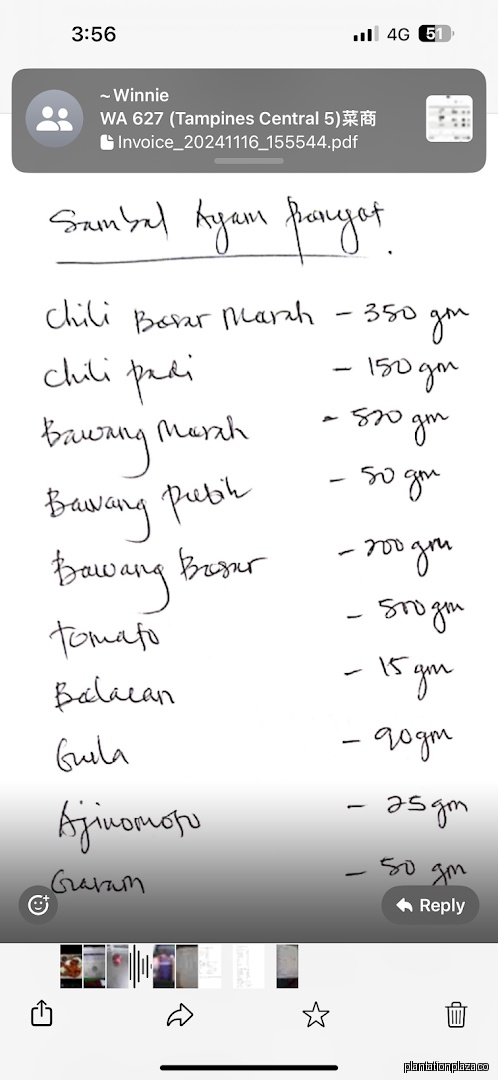 3:56
4G 51
~ Winnie
WA 627 (Tampines Central 5)菜商
Invoice_20241116_155544.pdf
Sambal Ayam
Chili Besar Merah - 350 gm
Chili padi - 150 gm
Bawang Merah - 520 gm
Bawang Putih - 50 gm
Bawang Besar - 200 gm
Tomato - 500 gm
Balacan - 15 gm
Gula - 90gm
Ajinomoto - 25 gm
Garam - 50 gm
Reply
plantationplaza.co